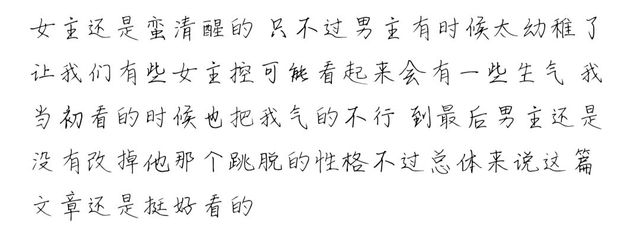 女主还是蛮清醒的 只不过男主有时候太幼稚了
让我们有些女主控可能看起来会有一些生气 我
当初看的时候也把我气的不行 到最后男主还是
没有改掉他那个跳脱的性格不过总体来说这篇
文章还是挺好看的